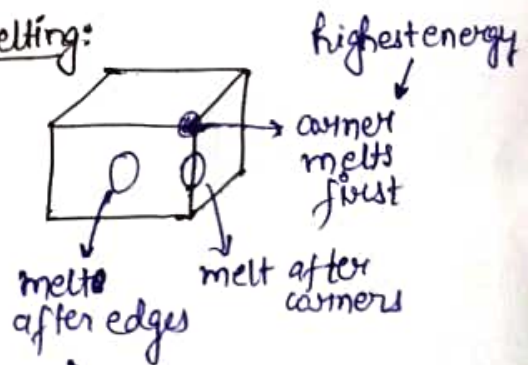 elting:
highest energy
corner
melts
first
melt after
corners
melts
after edges